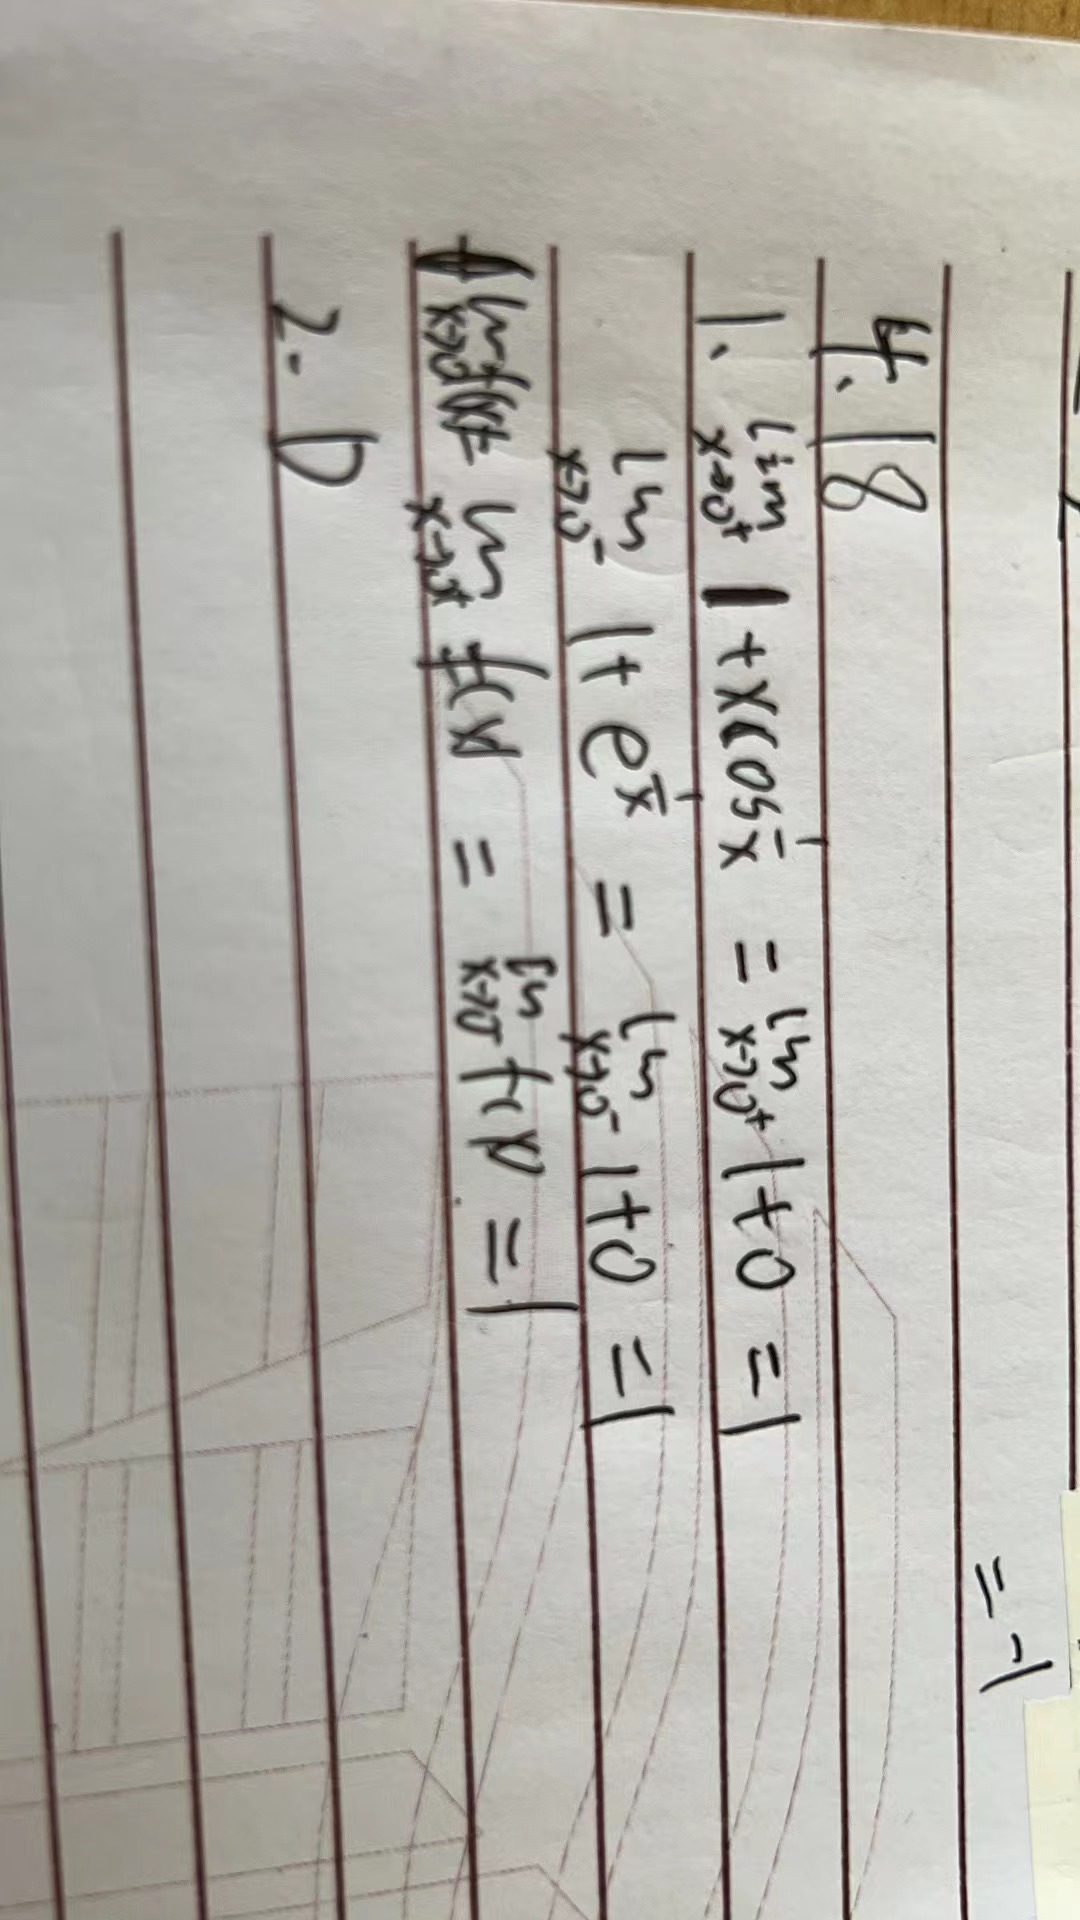 = -1
4.18
1. lim x→0⁺ 1+xcos 1/x = lim x→0⁺ 1+0 = 1
lim x→0⁻ 1+e^(1/x) = lim x→0⁻ 1+0 = 1
lim x→0 f(x)= lim x→0⁺ f(x) = lim x→0⁻ f(x) = 1
2. D